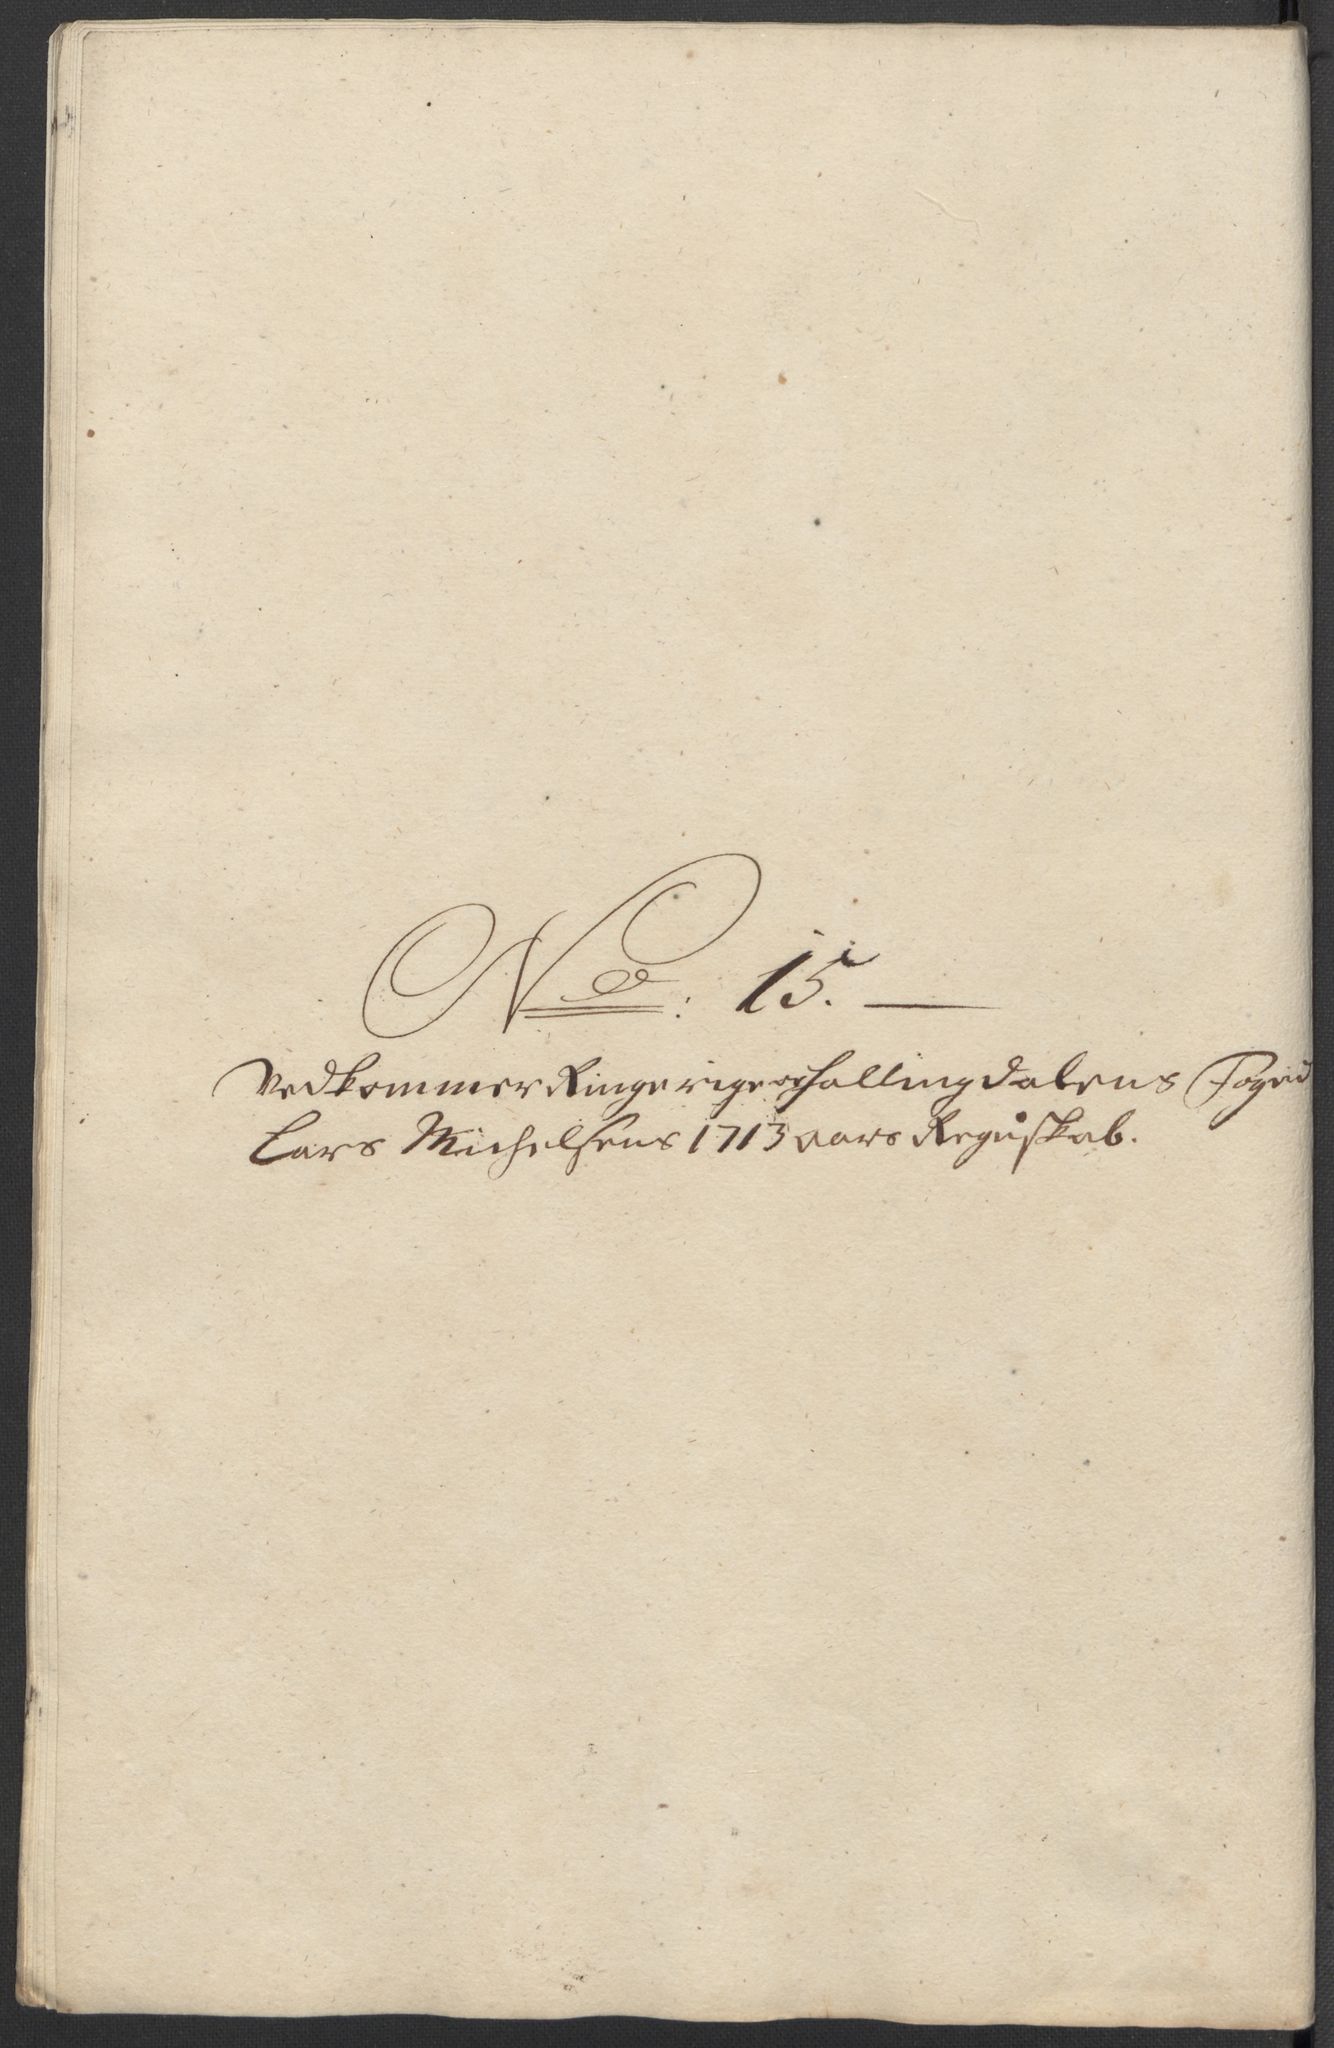 No: 15. —
Vedkommer Ringerige og Hallingdalens Foged
Lars Michelsens 1713 aars Reguskab.